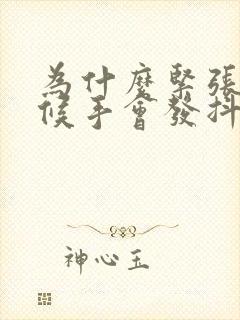 為什麼緊張
候手會發抖
神心玉